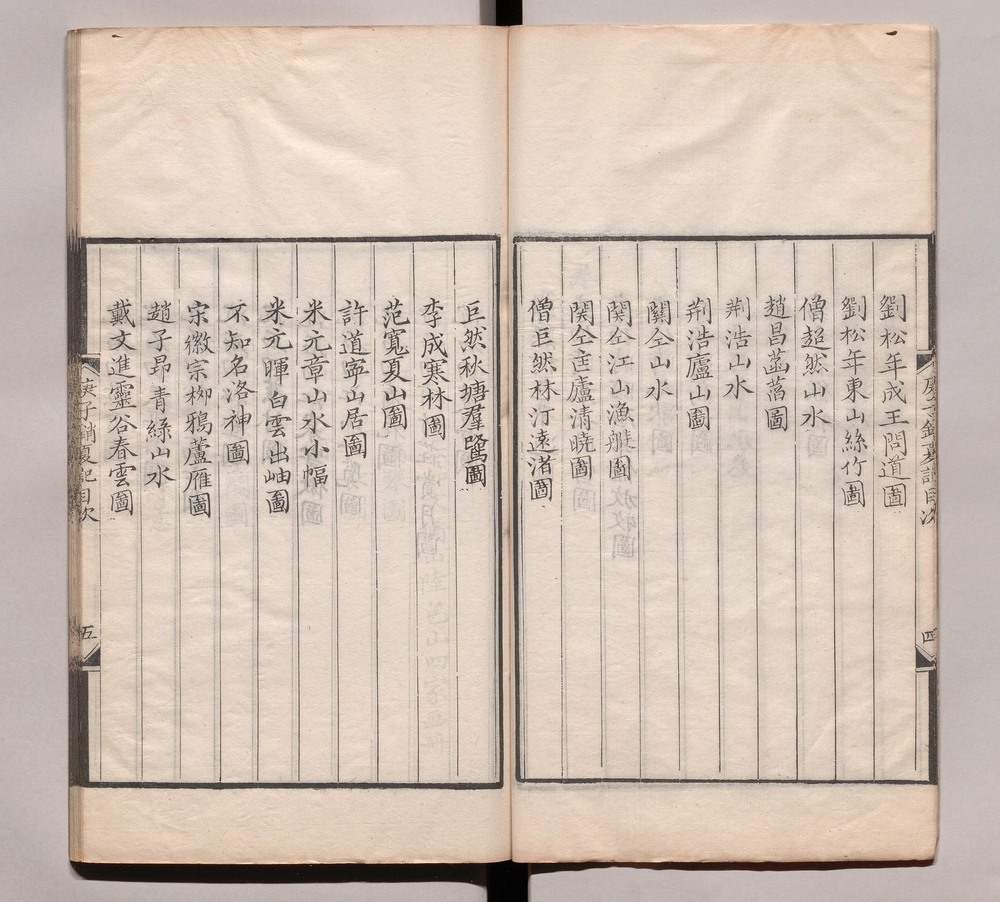 劉松年成王問道圖
劉松年東山絲竹圖
僧超然山水
趙昌菡萏圖
荆浩山水
荆浩廬山圖
關仝山水
関仝江山漁艇圖
関仝匡廬清曉圖
僧巨然林汀遠渚圖
庚子銷夏記目次
四
巨然秋塘羣鷺圖
李成寒林圖
范寬夏山圖
許道寧山居圖
米元章山水小幅
米元暉白雲出岫圖
不知名洛神圖
宋徽宗柳鴉蘆雁圖
趙子昂青綠山水
戴文進靈谷春雲圖
庚子銷夏記目次
五